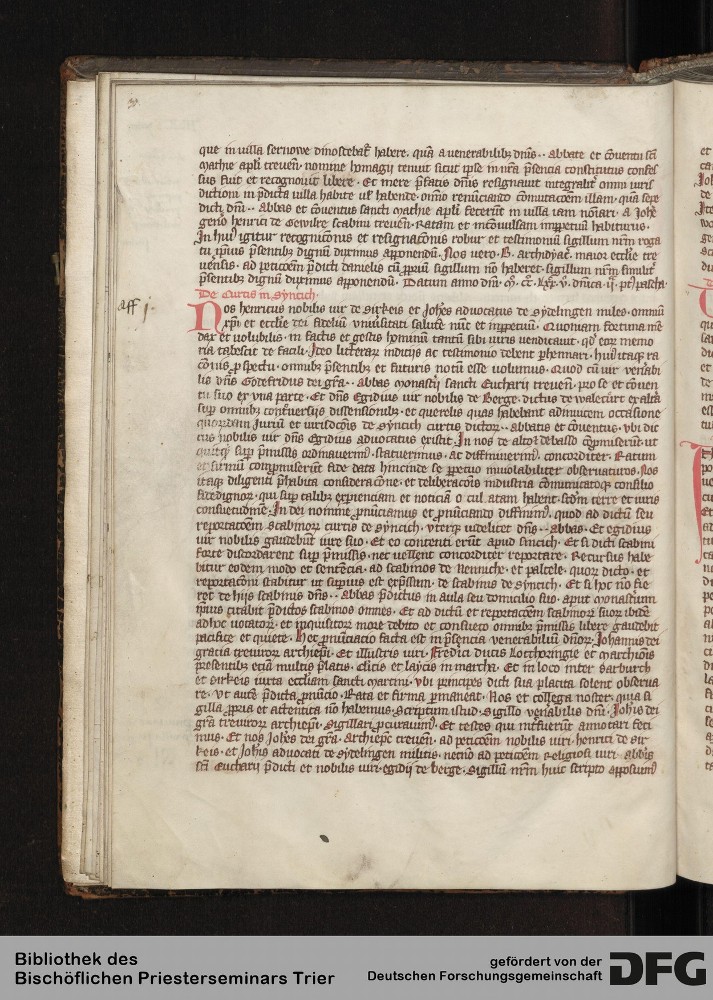 que in villa sernowe dinoscebat᷑ habere. quā a venerabilibꝫ dn̄is ·· abbate et ꝯuentu sc̄i
Mathie apl̄i treueñ. nomine homagij tenuit sicut ipse in nr̄a p̄sencia constitutus confes
sus fuit et recognouit libere. Et mere p̄fatus dn̄s resignauit integralit᷑ omni iuri
dictioni in p̄dicta villa habite vel habende. om̄io renunciando ꝯmutacōem illam. quā sepe
dicti dn̄i ·· Abbas et ꝯuentus sancti Mathie apl̄i fecerūt in villa iam no̅iari. a Joh̄e
gen̄o henrici de Gewilre scabini treueñ. Ratam et incōuulsam inp̱petuū habiturus.
In hui᷒ igitur recognicōnis et resignacōnis robur et testimoniū sigillum nr̄m roga
tu ip̄ius p̄sentibꝫ dignū duximus apponendū. Nos vero B. archidyac̄. maior eccl̄ie tre
uensis. ad peticōem p̄dicti danielis cū ꝓpriū sigillum nō haberet. sigillum nr̄m simulit᷑
p̄sentibꝫ dignū duximus apponendū. Datum anno dn̄i. M̊. CC̊.
De Curtis in Syncich.
aff j.
Nos henricus nobilis vir de Sirkeis et Joh̄es aduocatus de Sydelingen miles. omnibꝫ
xp̄i et eccl̄ie dei fidelib᷒ vniu̓sitati salutē nūc et inp̱petuū. Quoniam
dax et volubilis. in factis et gestis hominū tantū sibi iuris vendicauit. qd᷑ eor᷑ memo
ria tabescit de facili. Ideo litterar᷑ indicijs ac testimonio debent ꝑhennari. hui᷒ itaqꝫ ra
cōnis ꝓspectu. omnibꝫ p̄sentibꝫ et futuris notū esse volumus. Quod cū vir venabi
lis dn̄s Godefridus dei gr̄a ·· abbas monast̓ij sancti Eucharij treueñ. pro se et ꝯuen
tu suo ex vna parte. Et dn̄s Egidius vir nobilis de Berge. dictus de walecurt ex alt̓a
sup̱ omnibꝫ cont̓uersijs dissensionibꝫ. et querelis quas habebant adinuicem occasione
quorundam Juriū et iurisdcōis de Syncich curtis dictor᷑ ·· abbatis et ꝯuentus. vbi dic
tus nobilis vir dn̄s Egidius aduocatus existit. In nos
sup̱ p̄missis ordinauerim᷒. statuerimus. ac diffinuerim᷒. concordit̓er. Ratum
et firmū compromiserunt fide data hincinde se ꝑpetuo inuiolabiliter obseruaturos. Nos
itaqꝫ diligenti p̄habita consideracōne. et deliberacōnis industria cōmunicatoqꝫ consilio
fidedignor᷑. qui sup̱ talibꝫ exꝑienciam et noticiā habent. scd̄m terre et iuris
consuetudinē. In dei nomine ꝓnūciamus et ꝓnūciando diffinim᷒. quod ad dictū seu
reportacōem scabinor᷑ curtis de Syncich. vterqꝫ videlicet dn̄s ·· abbas. Et egidius
vir nobilis gaudebūt iure suo. Et eo contenti erūt apud Sincich. Et si dicti scabini
forte discordarent sup̱ p̄missis. nec vellent concordit̓ reportare. Recursus habe
bitur eodem modo et sentēcia. ad scabinos de Nenniche. et palcele. quor᷑ dicto. et
reportacōni stabitur ut sup̱ius est exp̄ssum. de scabinis de Syncich. Et si hoc nō fie
ret de hijs scabinis dn̄s ·· abbas p̄dictus in aula seu domicilio suo. aput monasterium
ip̄ius citabit p̄dictos scabinos omnes. Et ad dictū et reportacōem scabinor᷑ suor᷑ ibidē
adhoc vocator᷑. et inquisitor᷑ more debito et consueto omnibꝫ p̄missis libere gaudebit
pacifice et quiete. Hec ꝓnūciacio facta est in p̄sencia venerabiliū dn̄or᷑. Johannis dei
gracia treuiror᷑ archiep̄i. Et illustris viri. Fredici ducis Lotthoringie et marchiōis
presentibꝫ eciā multis p̄latis. cl̓icis et laycis in marcha. Et in loco inter Sarburch
et Sirkeis iuxta eccl̄iam sancti Martini. vbi principes dicti sua placita solent obserua
re. Vt autē p̄dicta ꝓnūcio. Rata et firma ꝑmaneat. Nos et collega noster. quia si
gilla ꝓpria et autentica nō habemus. Scriptum istud. Sigillo venabilis dn̄i. Joh̄is dei
gr̄a treuiror᷑ archiep̄i. Sigillari ꝓcurauim᷒. Et testes qui int̓fuerūt annotari feci
mus. Et nos Joh̄es dei gr̄a. Archiep̄c treueñ. ad peticōem nobilis viri. henrici de Sir
keis. et Joh̄is aduocati de Sydelingen militis. necnō ad peticōem Religiosi viri. abb̄is
sc̄i Eucharij p̄dicti et nobilis viri. egidij de berge. Sigillū nr̄m huic scripto apposuim᷒
Bibliothek des
Bischöflichen Priesterseminars Trier
gefördert von der
Deutschen Forschungsgemeinschaft
DFG